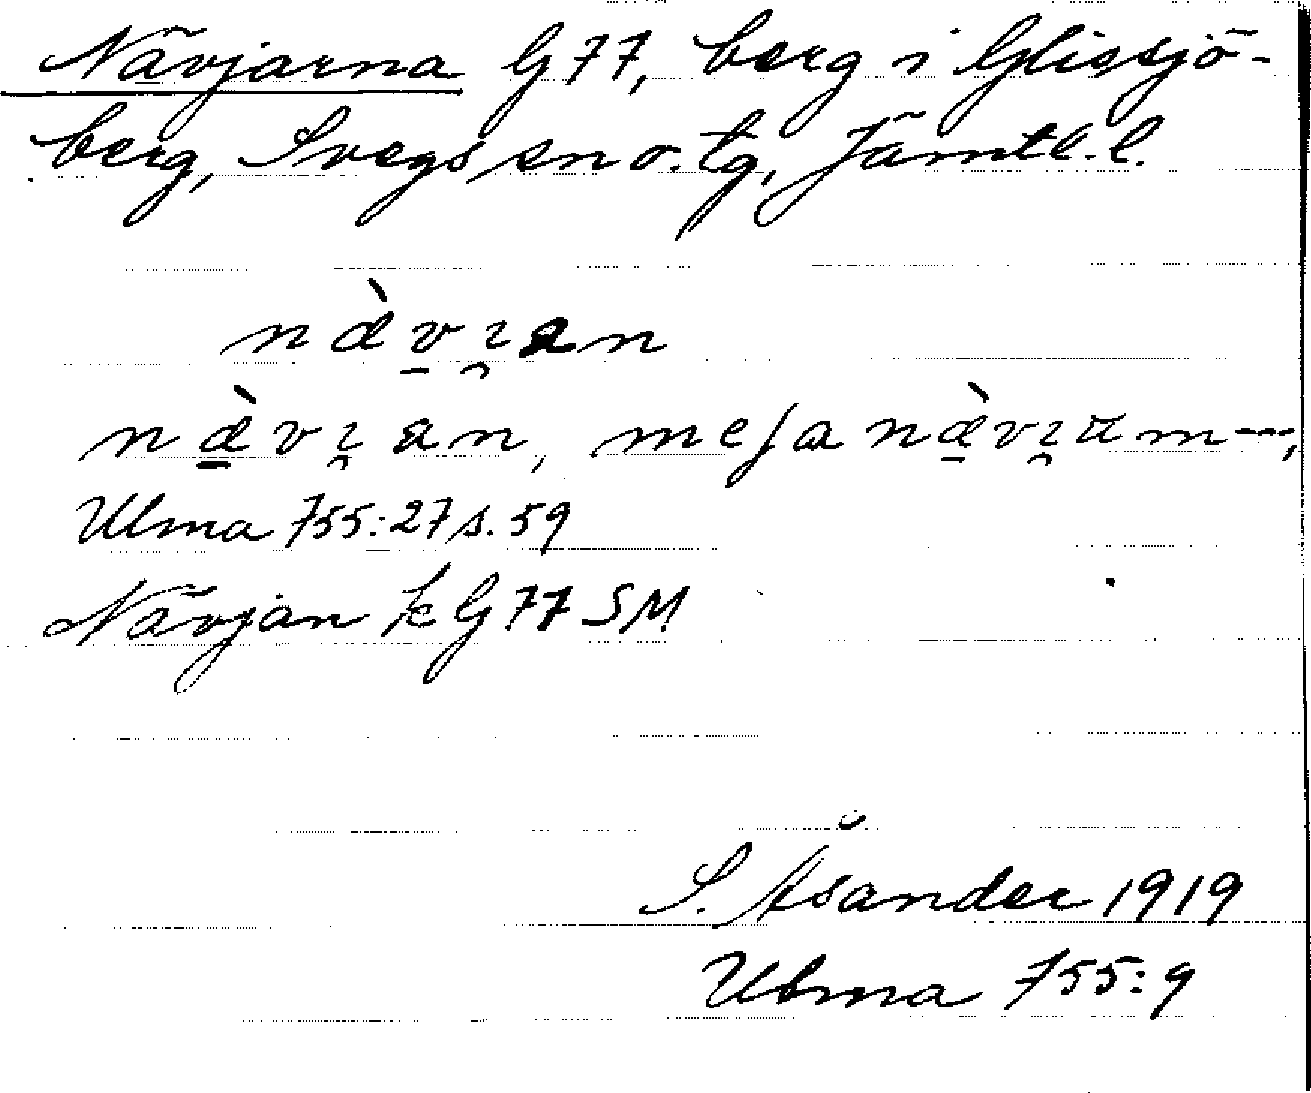 Nävjarna G 77, berg i Glissjö-
berg, Svegs sn o. tg, Jämtl. l.
næ̀v̱ı̯an
næ̱̀vı̯an, meʃa næ̱̀vı̯am---,
Ulma 755:27 s. 59
Nävjan k G 77 SM
S. Åsander 1919
Ulma 755:9